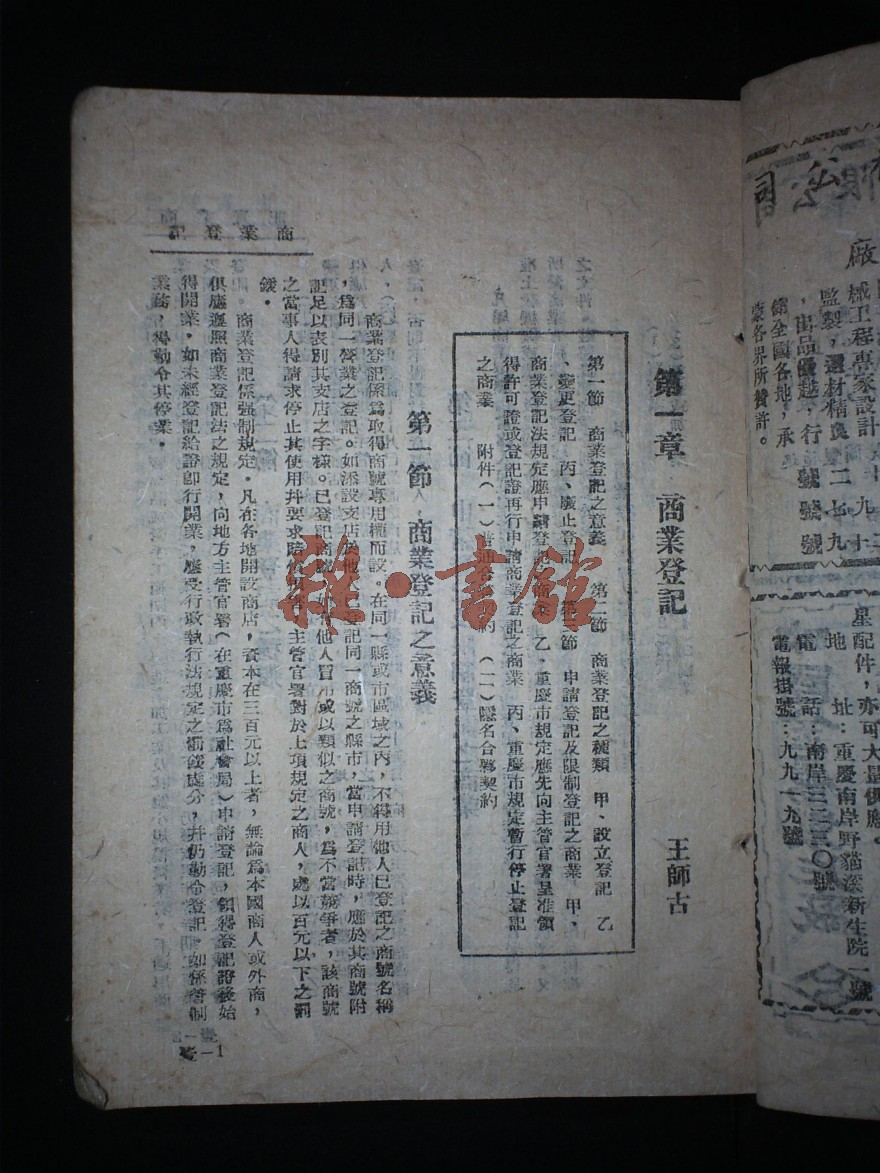 商業登記
第一章　商業登記
王師古
第一節　商業登記之意義　第二節　商業登記之種類　甲、設立登記　乙
、變更登記　丙、廢止登記　第三節　申請登記及限制登記之商業　甲、
商業登記法規定應申請登記之商業　乙、重慶市規定應先向主管官署呈准領
得許可證或登記證再行申請商業登記之商業　丙、重慶市規定暫行停止登記
之商業　附件（一）普通合夥契約　（二）隱名合夥契約
第一節　商業登記之意義
商業登記係爲取得商號專用權而設。在同一縣或市區域之內，不得用他人已登記之商號名稱
，爲同一營業之登記。如添設支店於他人已登記同一商號之縣市，當申請登記時，應於其商號附
記足以表別其支店之字樣。已登記商號，如有他人冒用或以類似之商號，爲不當競爭者，該商號
之當事人得請求停止其使用并要求賠償損害，主管官署對於上項規定之商人，處以百元以下之罰
鍰。
商業登記係強制規定。凡在各地開設商店，資本在三百元以上者，無論爲本國商人或外商，
俱應遵照商業登記法之規定，向地方主管官署（在重慶市爲社會局）申請登記，領得登記證後始
得開業。如未經登記給證卽行開業，應受行政執行法規定之罰鍰處分，并仍勒令登記。如係管制
業務，得勒令其停業。
壹—1
公司
廠
械工程專家設計
監製，選材精良
，出品優越，行
銷全國各地，承
蒙各界所贊許。
二七九
號號號
星配件，亦可大量供應。
地　址：重慶南岸野貓溪新生院一號
電　話：南岸三二三〇號
電報掛號：九九一九號
雜·書館